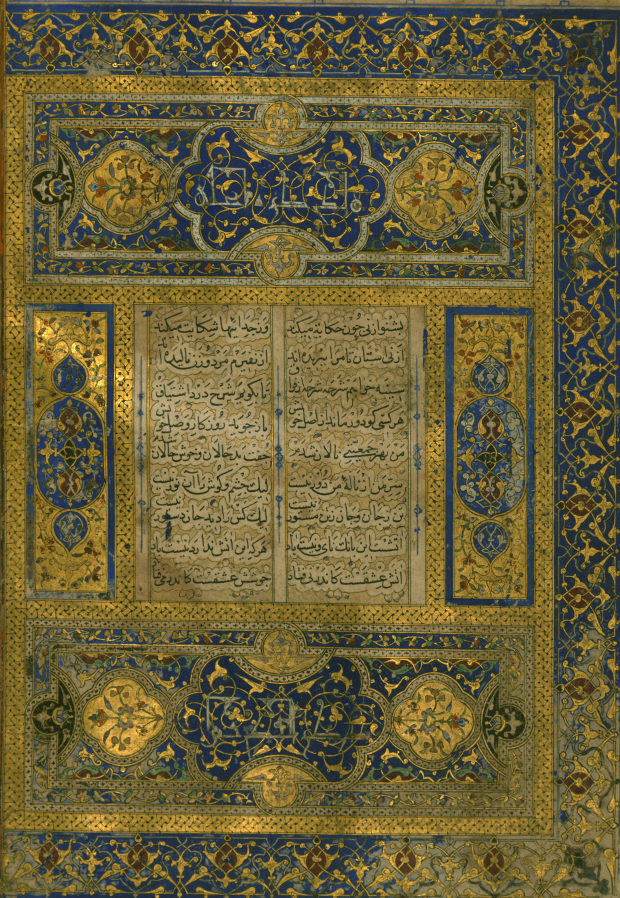 بشنو از نی چون حکایة میکند وز جدائیها شکایت میکند
از نی استان تا مرا ببریده اند از نفیرم مرد و زن نالیده اند
سینه خواهم شرحه شرحه از فراق تا بکویم شرح درد اشتیاق
هر کسی کو دور ماند از اصل خویش باز جوید روزکار وصل خویش
من بهر جمعیتی نالان شدم جفت بدحالان و خوش حالان شدم
سر من از ناله من دور نیست لیک چشم و کوش را آن نور نیست
تن ز جان و جان ز تن مستور نیست لیک کس را دید جان دستور نیست
آتشست این بانک نای و نیست باد هر که این آتش ندارد نیست باد
آتش عشقست کاندر نی فتاد جوشش عشقست کاندر می فتاد